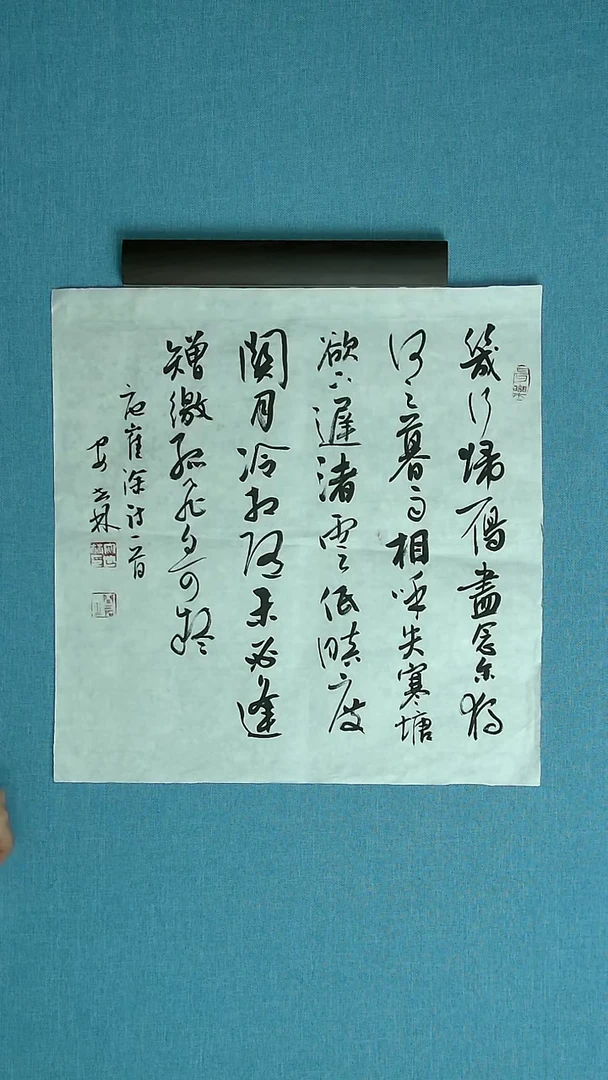 幾行歸雁盡念尔獨
何之暮雨相呼失寒塘
欲下遲渚雲低暝度
關月冷相隨未必逢
矰繳孤飛自可疑
唐崔涂詩一首